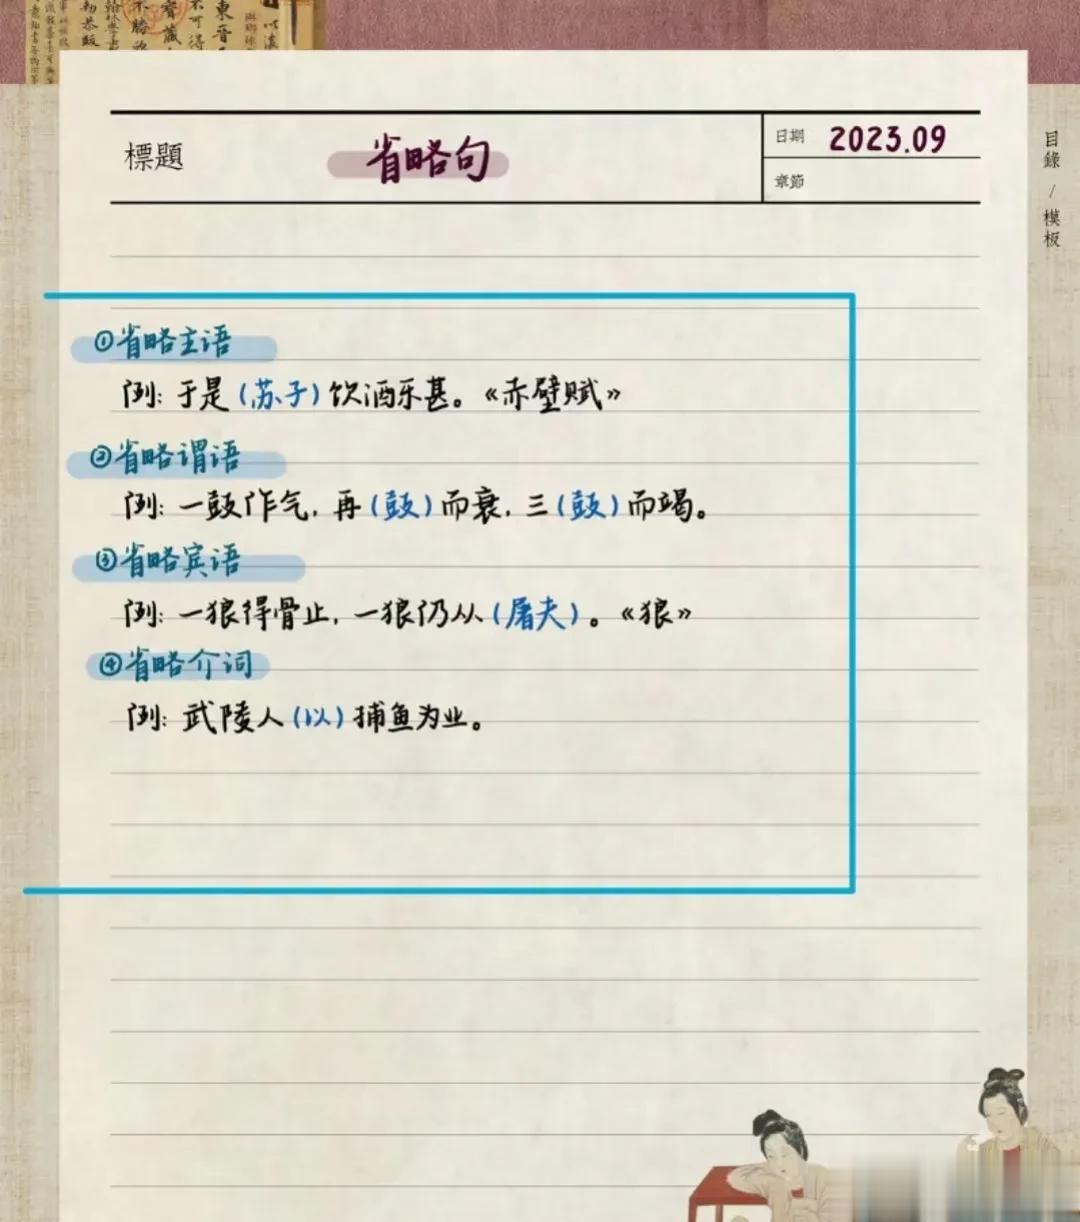 標題
省略句
日期 2023.09
章節
目錄 / 模板
①省略主语
例: 于是(苏子)饮酒乐甚。《赤壁赋》
②省略谓语
例: 一鼓作气, 再(鼓)而衰, 三(鼓)而竭。
③省略宾语
例: 一狼得骨止, 一狼仍从(屠夫)。《狼》
④省略介词
例: 武陵人(以)捕鱼为业。